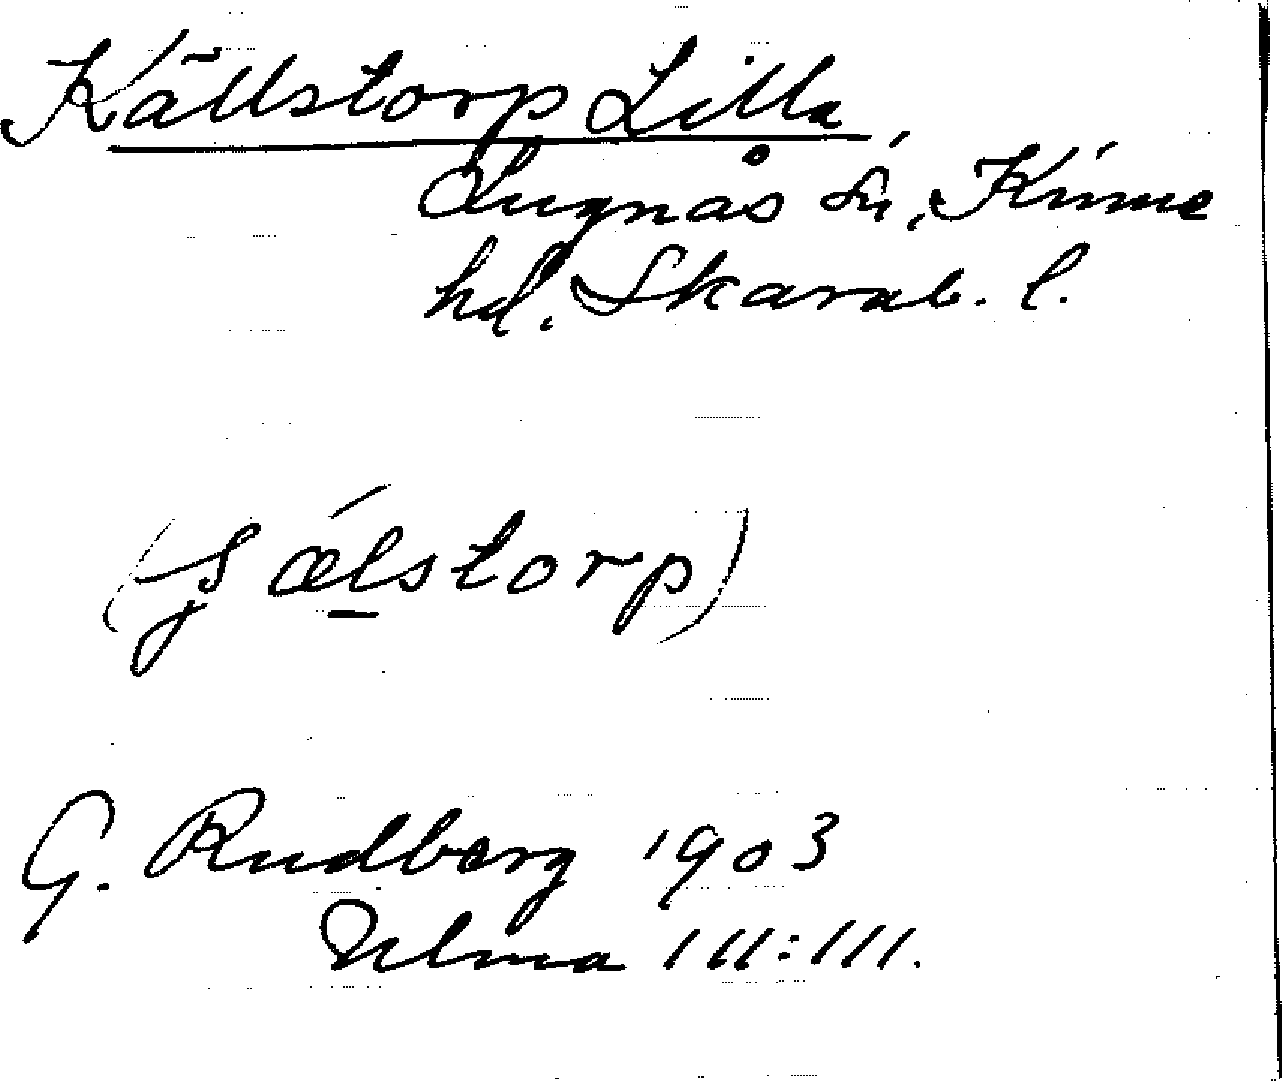 Källstorp Lilla
Lugnås sn, Kinne
hd. Skarab. l.
(ʃǽlstorp)
G. Rudberg 1903
Ulma 111:111.